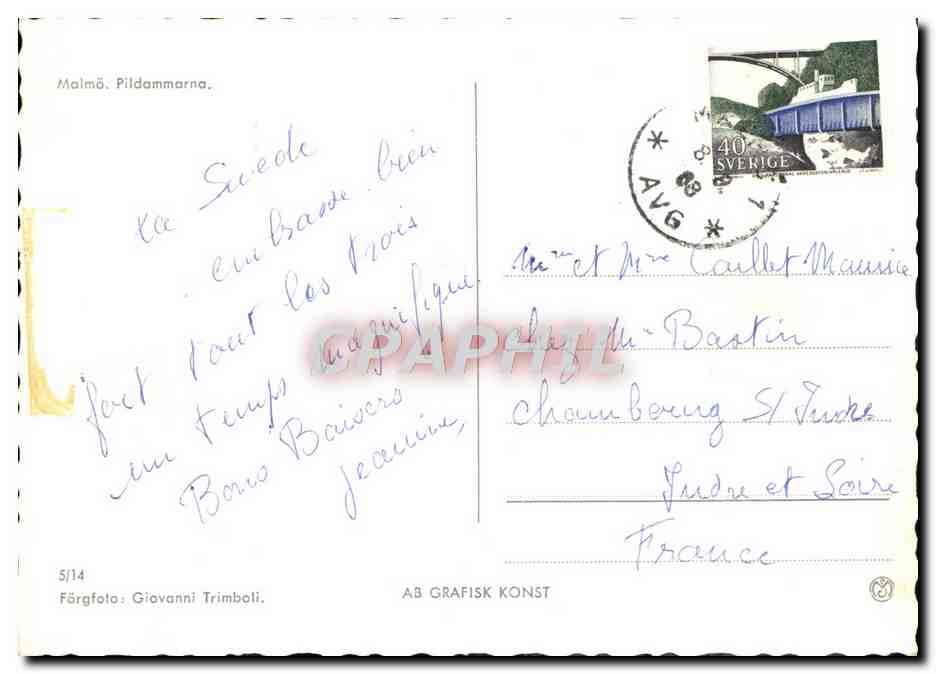 Malmö. Pildammarna.
La Suède
embrasse bien
fort tout les trois
un temps magnifique.
Bons Baisers
Jeanine,
40
SVERIGE
AVG
Mme et Mr Caillet Maurice
chez Mr Bastin
Chambourg S/ Indre
Indre et Loire
France
CPAPHIL
5/14
Färgfoto: Giovanni Trimboli.
AB GRAFISK KONST